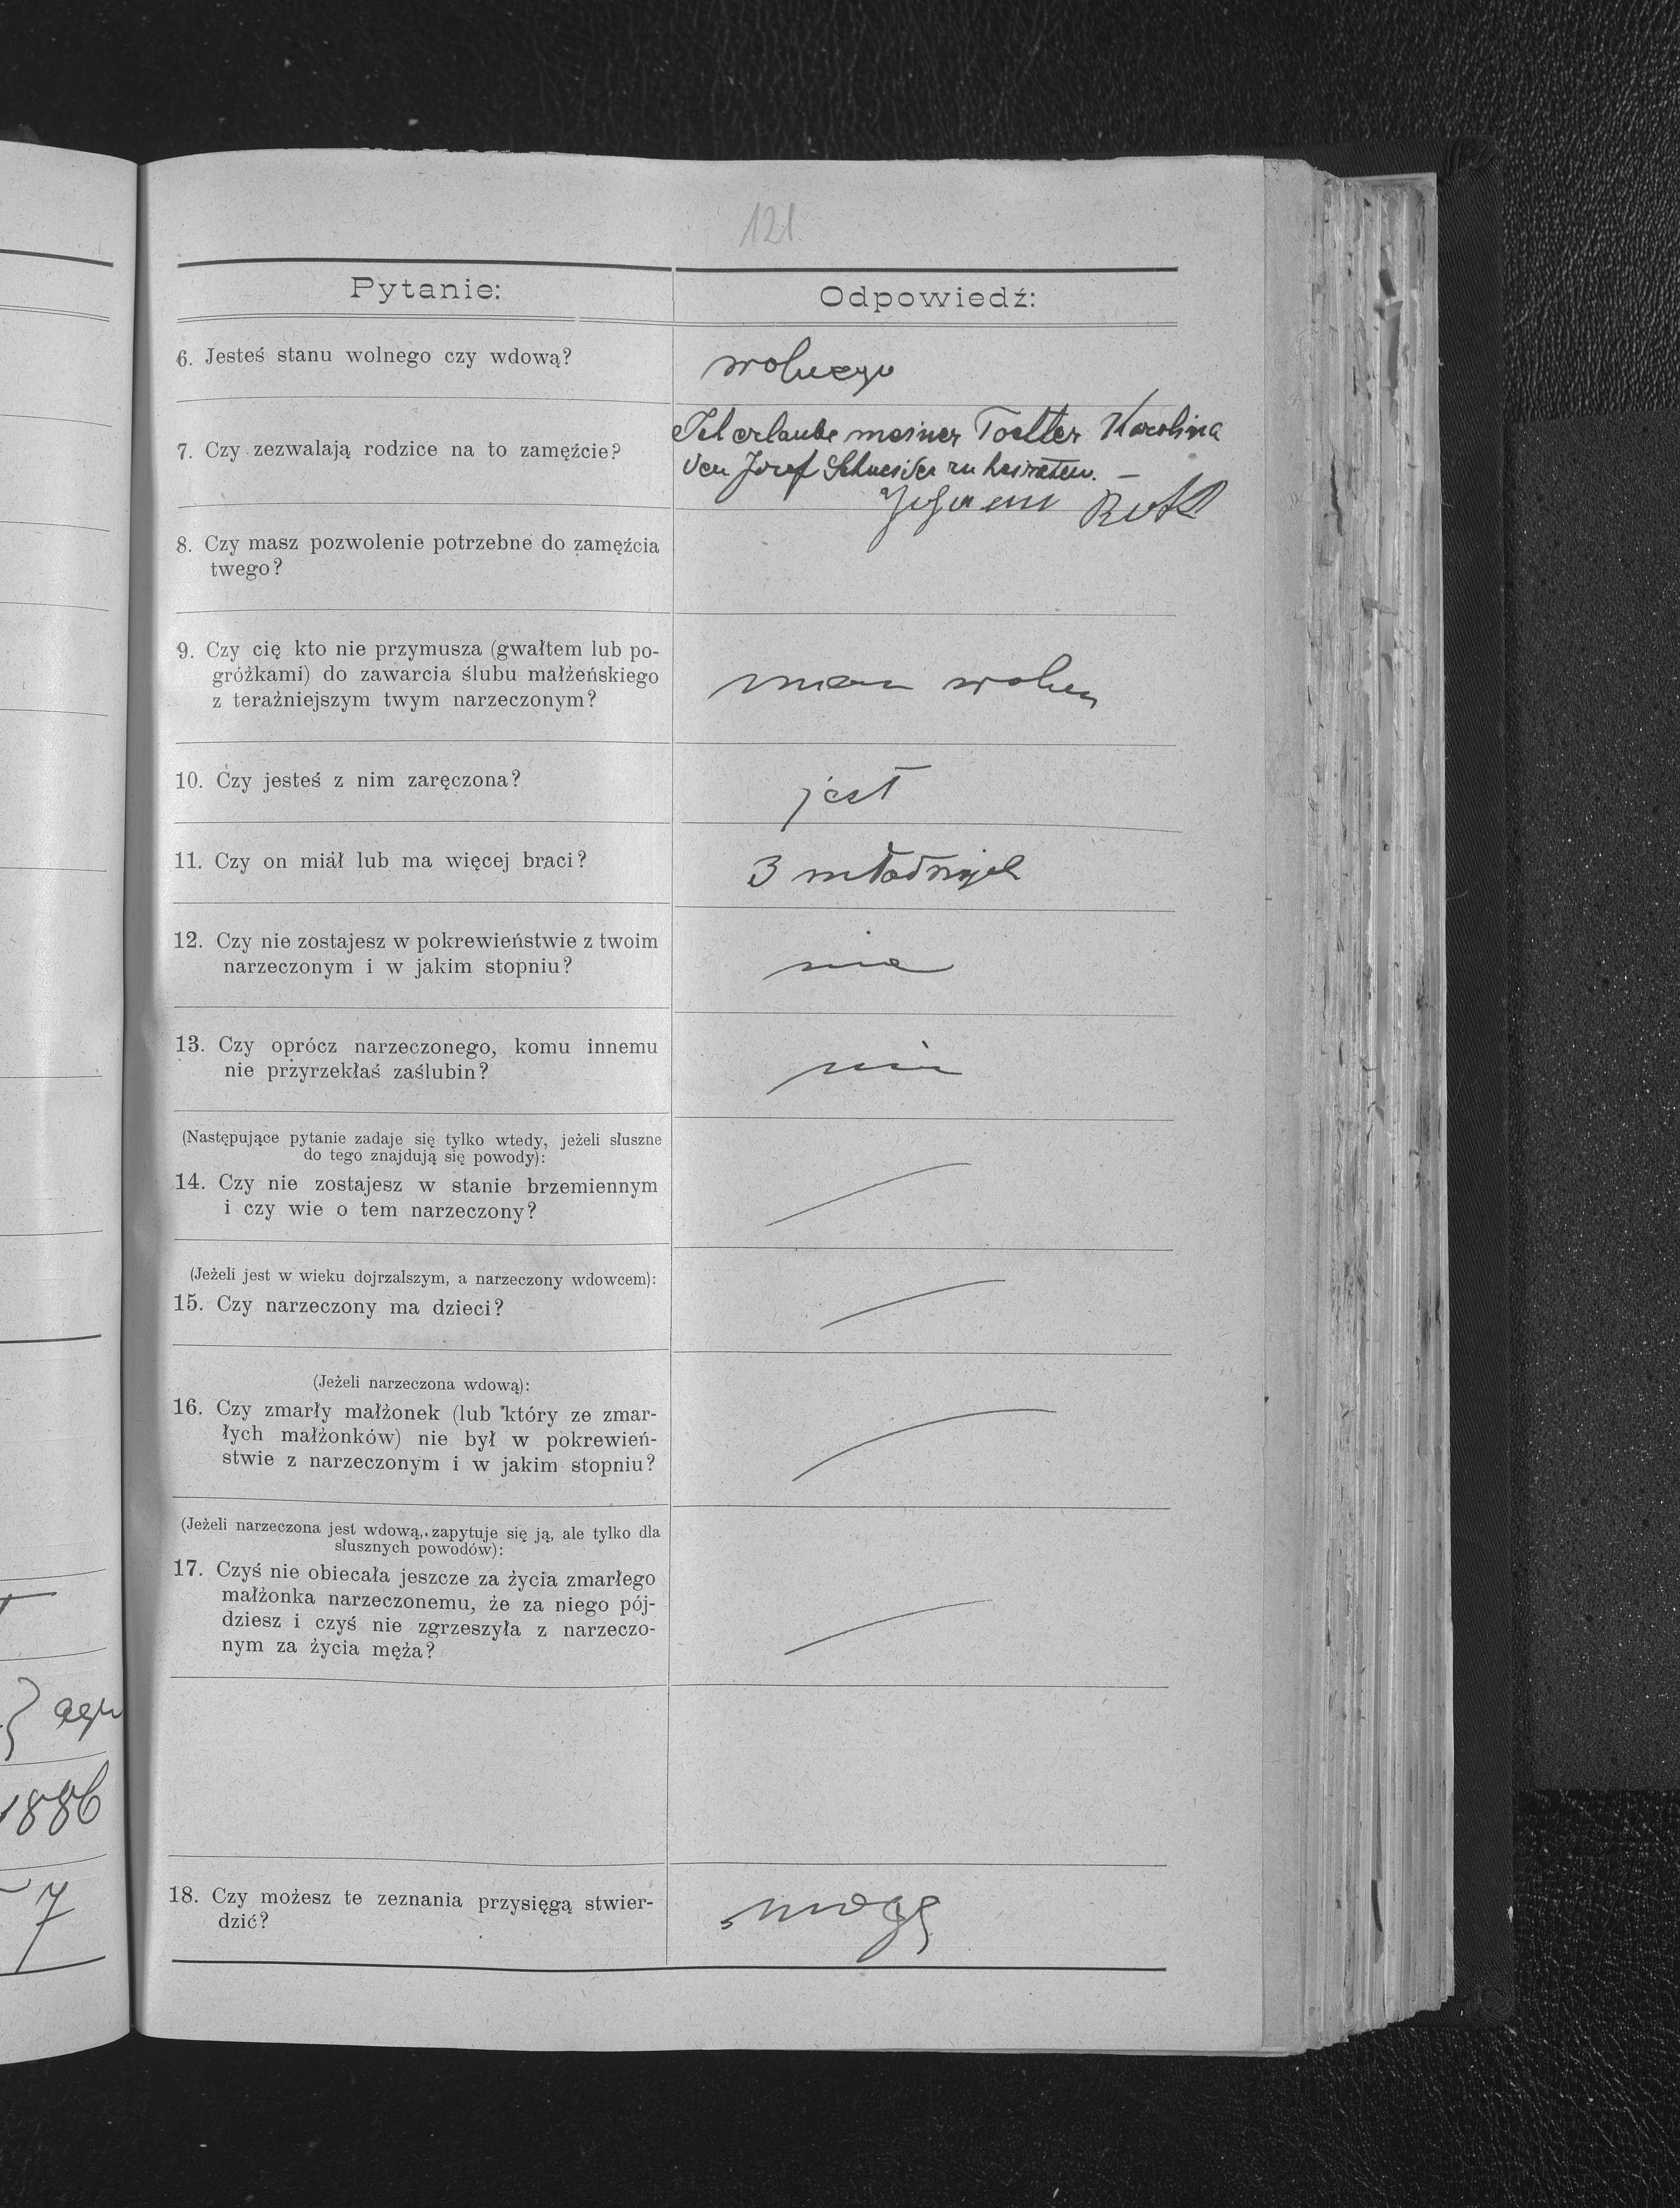 121.
Pytanie:
Odpowiedź:
6. Jesteś stanu wolnego czy wdową?
wolnego
7. Czy zezwalają rodzice na to zamęźcie?
Ich erlaube meiner Tochter Karolina
den Josef Schneider zu heiraten. —
Johann
8. Czy masz pozwolenie potrzebne do zamęźcia
twego?
9. Czy cię kto nie przymusza (gwałtem lub po-
gróżkami) do zawarcia ślubu małżeńskiego
z teraźniejszym twym narzeczonym?
mam wolną
10. Czy jesteś z nim zaręczona?
jest
11. Czy on miał lub ma więcej braci?
3 młodszych
12. Czy nie zostajesz w pokrewieństwie z twoim
narzeczonym i w jakim stopniu?
nie
13. Czy oprócz narzeczonego, komu innemu
nie przyrzekłaś zaślubin?
nie
(Następujące pytanie zadaje się tylko wtedy, jeżeli słuszne
do tego znajdują się powody):
14. Czy nie zostajesz w stanie brzemiennym
i czy wie o tem narzeczony?
(Jeżeli jest w wieku dojrzalszym, a narzeczony wdowcem):
15. Czy narzeczony ma dzieci?
(Jeżeli narzeczona wdową):
16. Czy zmarły małżonek (lub który ze zmar-
łych małżonków) nie był w pokrewień-
stwie z narzeczonym i w jakim stopniu?
(Jeżeli narzeczona jest wdową, zapytuje się ją, ale tylko dla
słusznych powodów):
17. Czyś nie obiecała jeszcze za życia zmarłego
małżonka narzeczonemu, że za niego pój-
dziesz i czyś nie zgrzeszyła z narzeczo-
nym za życia męża?
1886
7
18. Czy możesz te zeznania przysięgą stwier-
dzić?
mogę